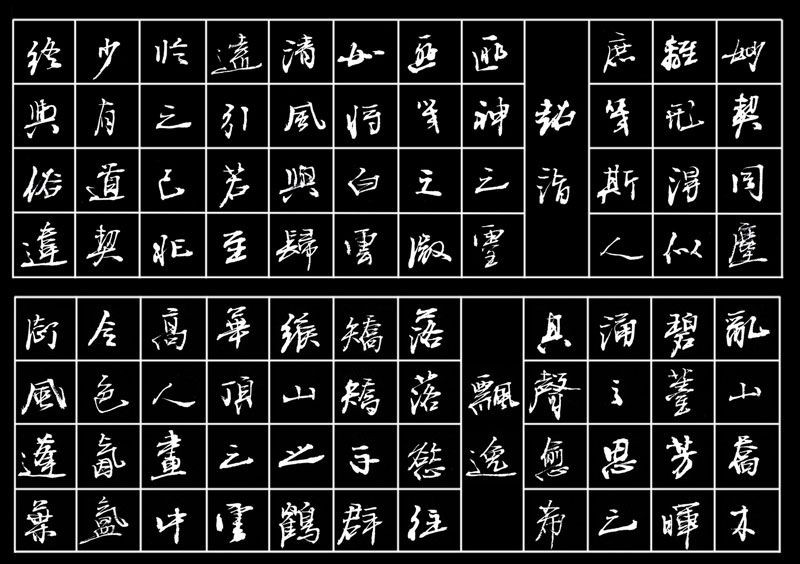 妙契同塵
離形得似
庶幾斯人
超詣
匪神之靈
匪幾之微
如將白雲
清風與歸
遠引若至
臨之已非
少有道契
終與俗違
亂山喬木
碧苔芳暉
誦之思之
其聲愈希
飄逸
落落慾往
矯矯不群
緱山之鶴
華頂之雲
高人畫中
令色氤氳
御風蓬葉